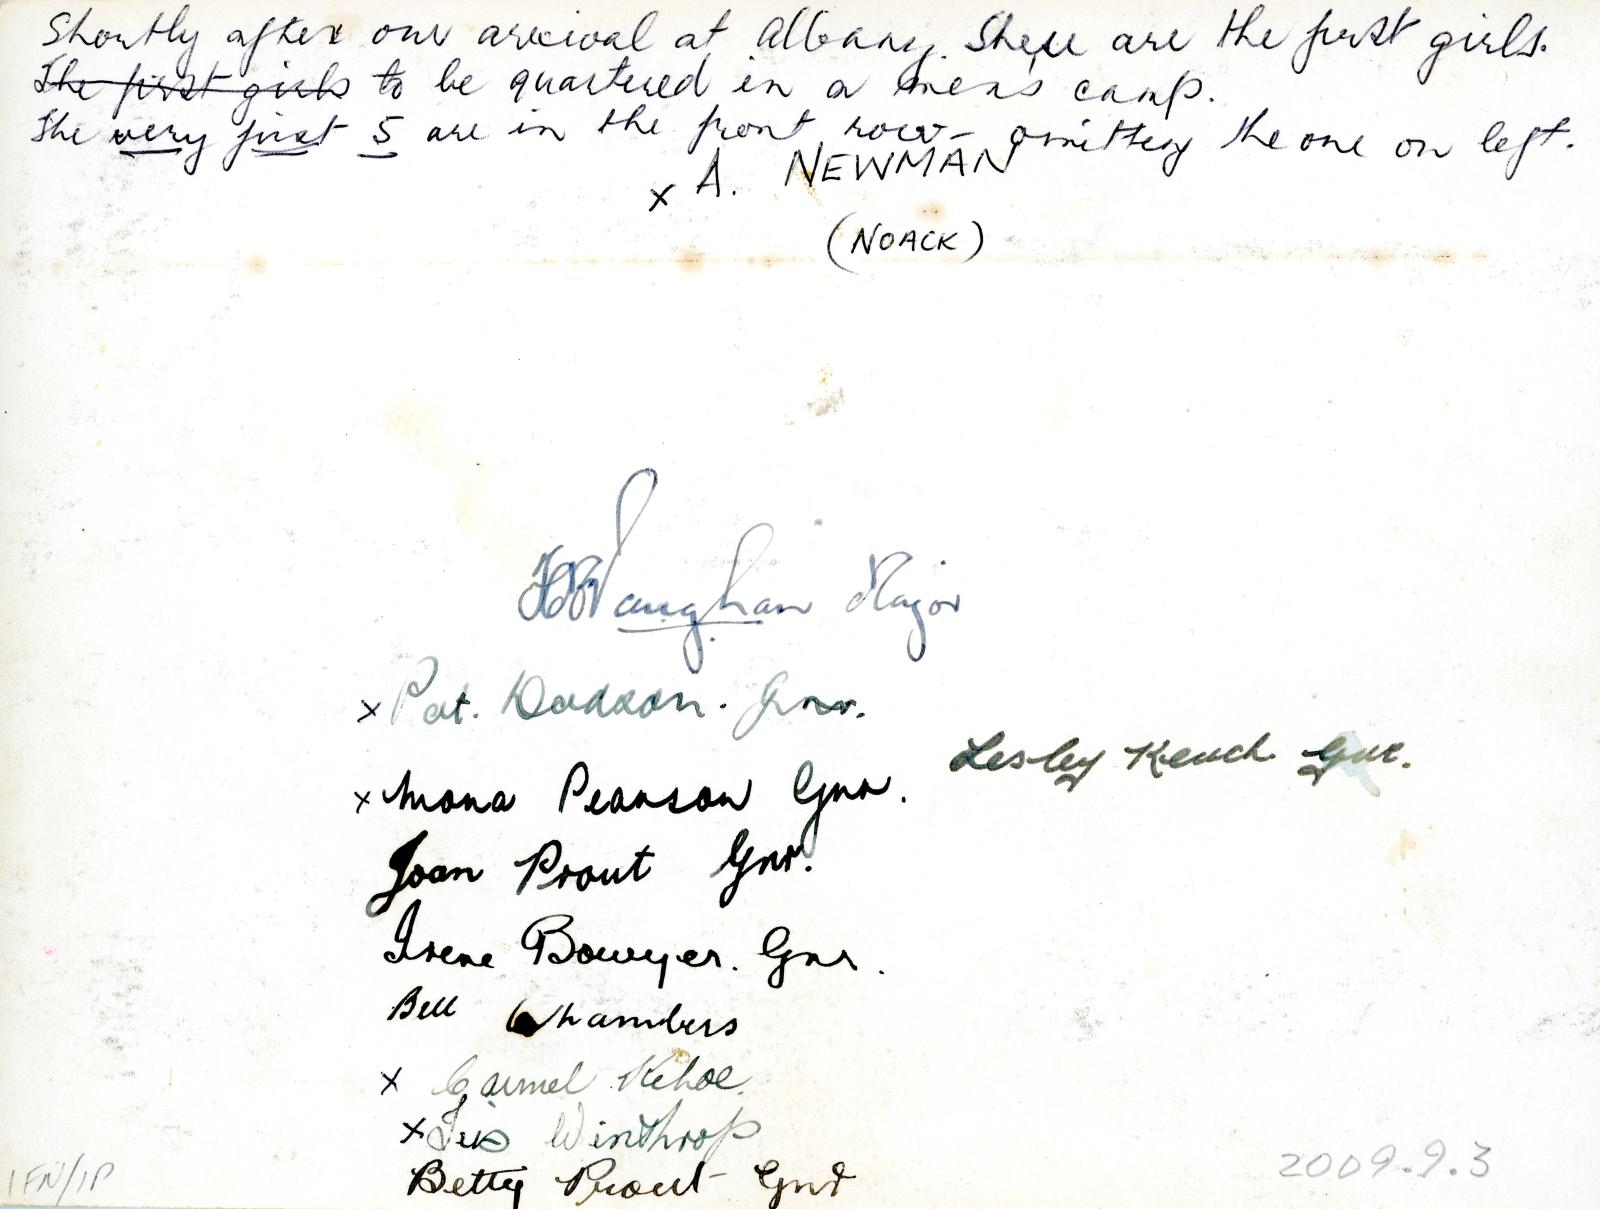 Shortly after our arrival at Albany. These are the first girls.
The first girls to be quartered in a men's camp.
The very first 5 are in the front row - omitting the one on left.
x A. NEWMAN
(NOACK)
Vaughan Major
x Pat. Dodson. Gnr.
Lesley Keuch Gnr.
x Mona Pearson Gnr.
Joan Prout Gnr.
Irene Bowyer. Gnr.
Bell Chambers
x Carmel Kehoe
x Iris Winthrop
Betty Prout Gnr
1FN/1P
2009.9.3